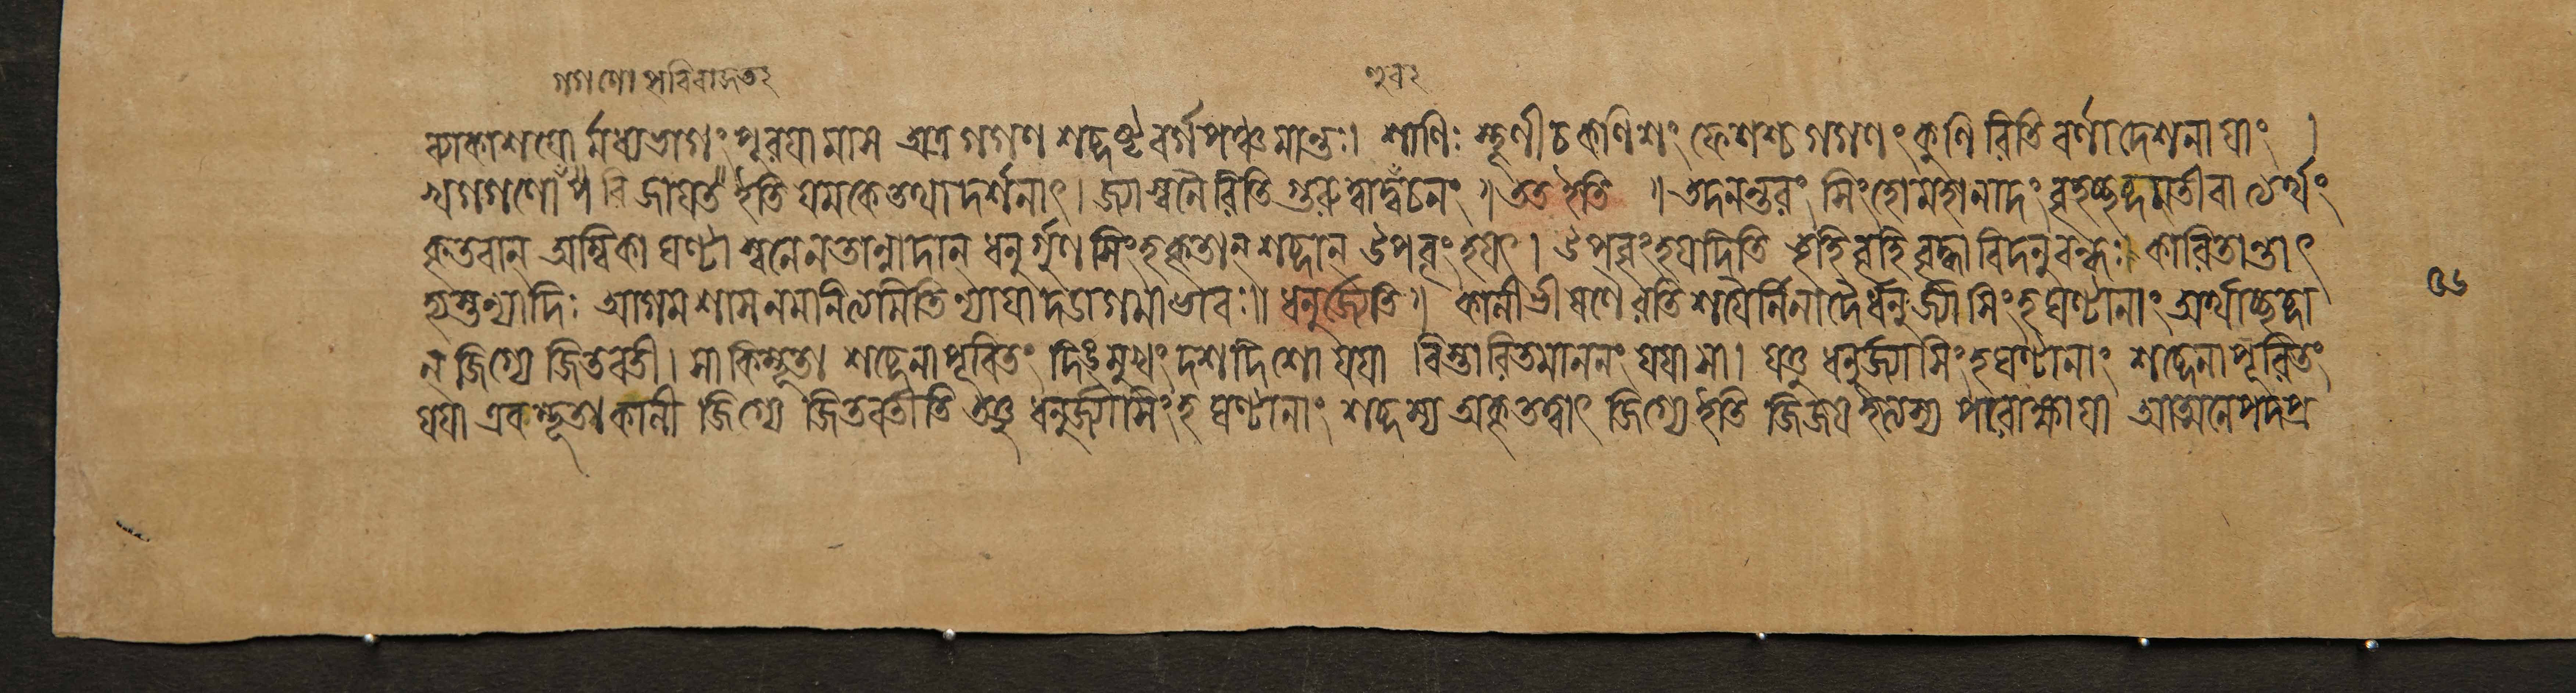 গগণো পবিবাদত২
ণ্টব২
ব্যাকাশযো র্মধ্যভাগং পূরযামাস অত্র গগণ শব্দ ষ্টবর্গপঞ্চমান্তঃ। শাণিঃ স্থূণী চ কণিশং ফেণশ্চ গগণং কুণি রিতি বর্ণাদেশনাযাং ।
গগণোঁপরি জাযত ইতি যমকে তথাদর্শনাৎ। জ্যাস্বনৈ রিতি গুরুত্বাদ্বচনং ॥ তত ইতি ॥ তদনন্তরং সিংহোমহানাদং বৃহচ্ছব্দমতীবাত্যর্থং
কৃতবান্ অম্বিকা ঘণ্টাস্বনেন তান্নাদান্ ধনুর্গুণসিংহকৃতান্ শব্দান্ উপবৃংহযৎ। উপবৃংহযদিতি বৃহি বৃদ্ধাবিদনুবন্ধঃ কারিতান্তাৎ
হ্যস্তন্যাদিঃ আগমশাসনমনিত্যমিতি ন্যাযাদডাগমাভাবঃ॥ ধনুর্জ্যেতি॥ কালী ভীষণৈ রতিশযৈর্নিনাদৈ র্ধনুর্জ্যাসিংহঘণ্টানাং অর্থাচ্ছব্দা
ন্ জিগ্যে জিতবতী। সা কিম্ভূতা শব্দেনাপূরিতং দিঙ্মুখং দশদিশো যযা বিস্তারিতমাননং যযা সা। যত্তু ধনুর্জ্যাসিংহঘণ্টানাং শব্দেনাপূরিতং
যযা এবম্ভূতা কালী জিগ্যে জিতবতীতি তত্তু ধনুর্জ্যাসিংহঘণ্টানাং শব্দস্য অকৃতত্বাৎ জিগ্যে ইতি জিজযে ইত্যস্য পরোক্ষাযা আত্মনেপদপ্র